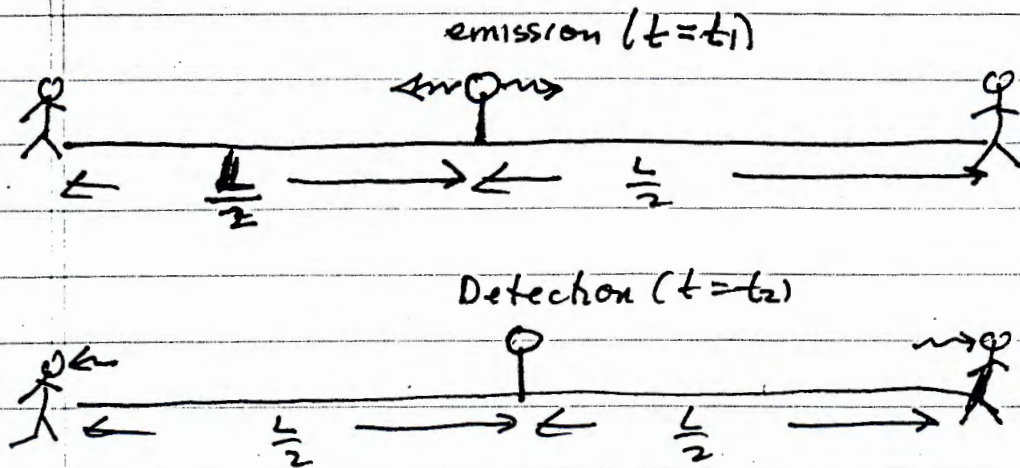 emission (t=t₁)
L/2 L/2
Detection (t=t₂)
L/2 L/2